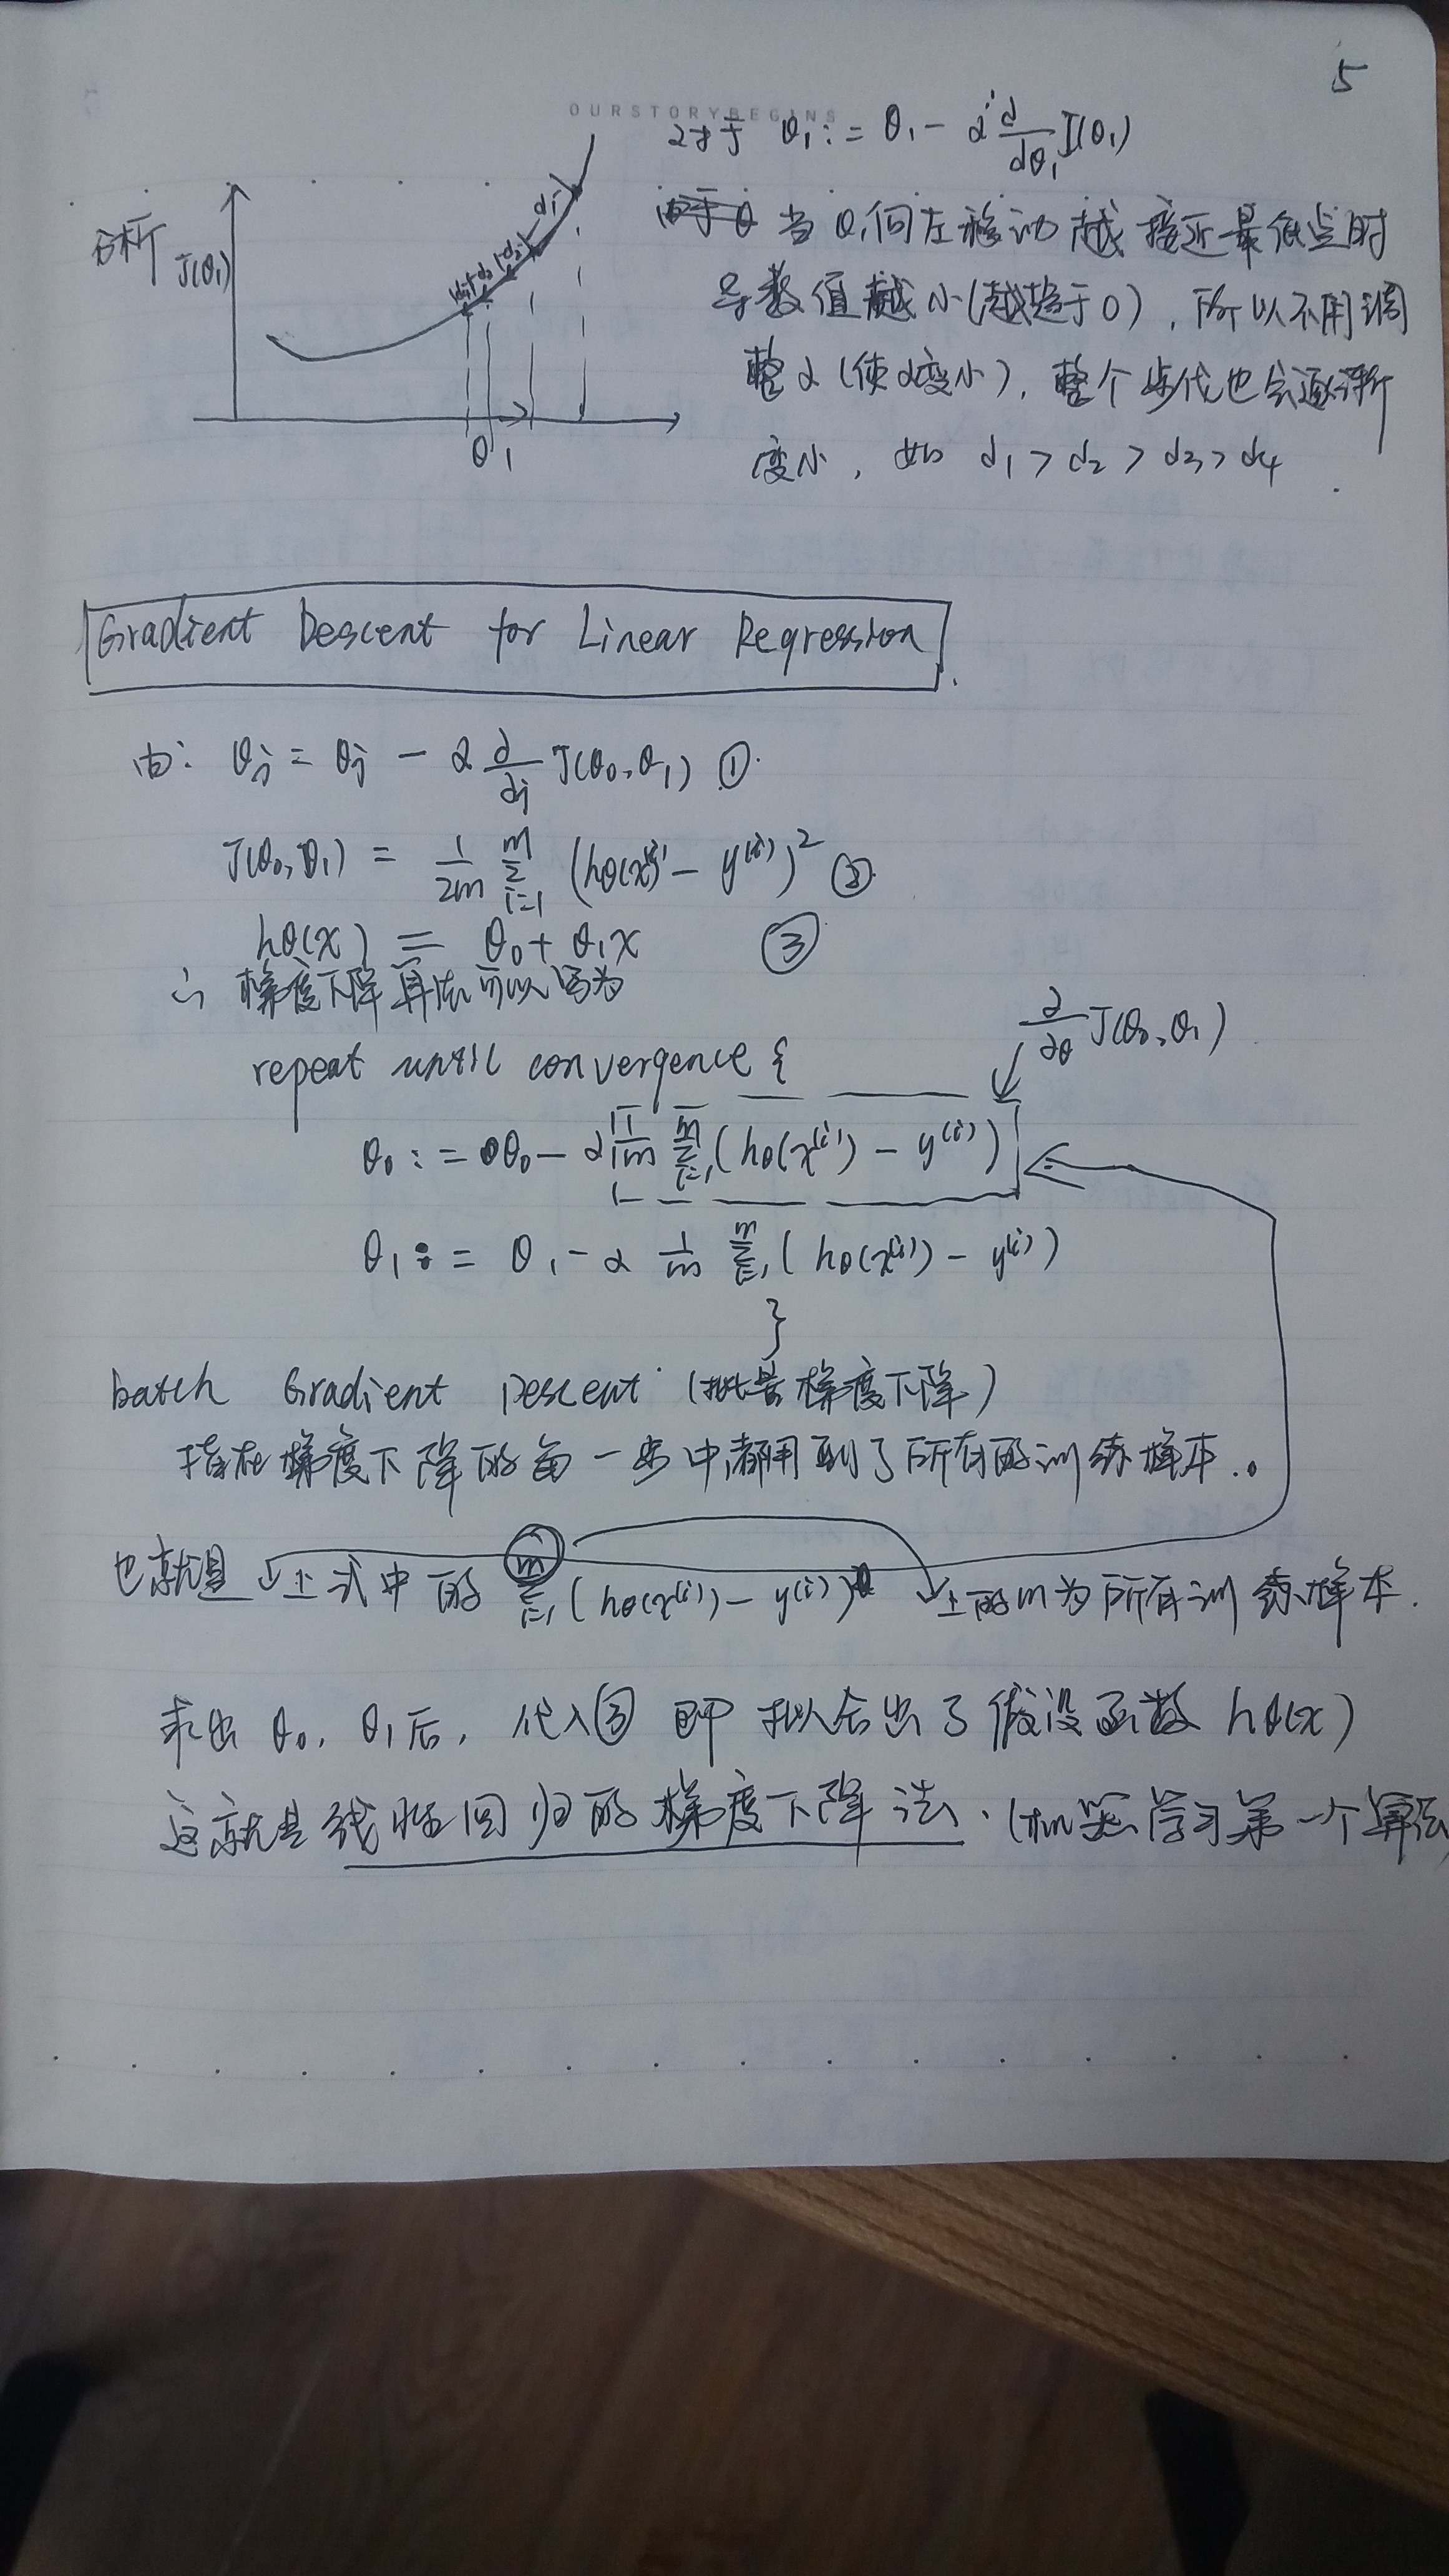 5
OURSTORYBEGINS
对于 θ₁ := θ₁ - α d/dθ₁ J(θ₁)
分析 J(θ₁)
d₁
θ₁
由于θ 当θ₁向左移动越接近最低点时
导数值越小(越趋于0),所以不用调
整α(使α变小),整个步伐也会逐渐
变小,如 d₁ > d₂ > d₃ > d₄
Gradient Descent for Linear Regression
由: θj = θj - α ∂/∂j J(θ₀,θ₁) ①
J(θ₀,θ₁) = 1/2m Σ_{i=1}^{m} (hθ(x⁽ⁱ⁾) - y⁽ⁱ⁾)² ②
hθ(x) = θ₀ + θ₁x ③
∴ 梯度下降算法可以写为
∂/∂θ J(θ₀,θ₁)
repeat until convergence {
θ₀ := θ₀ - α 1/m Σ_{i=1}^{m} (hθ(x⁽ⁱ⁾) - y⁽ⁱ⁾)
θ₁ := θ₁ - α 1/m Σ_{i=1}^{m} (hθ(x⁽ⁱ⁾) - y⁽ⁱ⁾)
}
batch Gradient Descent (批量梯度下降)
指在梯度下降的每一步中,都用到了所有的训练样本.
也就是上式中的 Σ_{i=1}^{m} (hθ(x⁽ⁱ⁾) - y⁽ⁱ⁾) 上的m为所有训练样本.
求出 θ₀, θ₁后, 代入③ 即拟合出了假设函数 hθ(x)
这就是线性回归的梯度下降法. (机器学习第一个算法